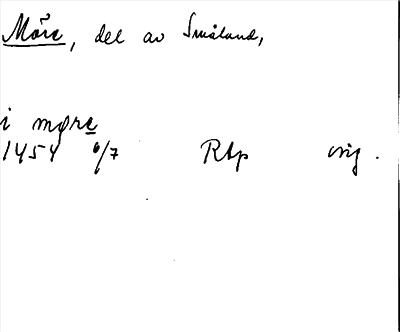 Möre, del av Småland,
i møre
1454 6/7 RAp orig.